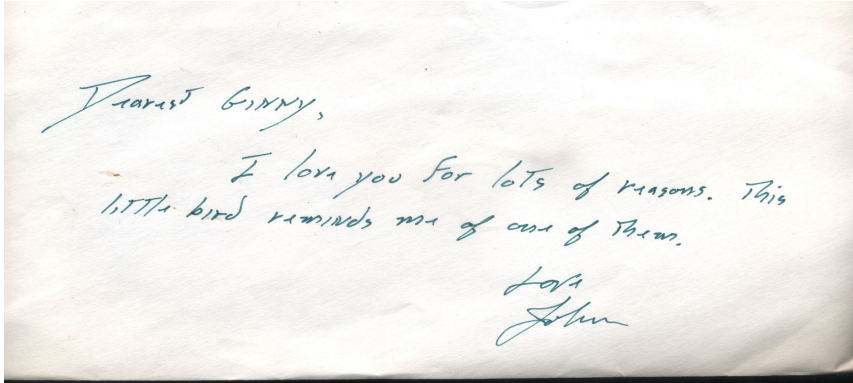 Dearest GINNY,
I love you for lots of reasons. This
little bird reminds me of one of them.
Love
John